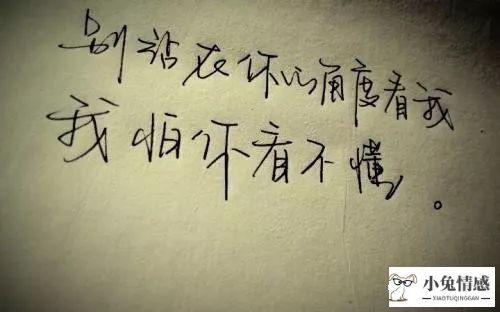 别站在你的角度看我
我怕你看不懂。
小兔情感
XIAOTUQINGGAN